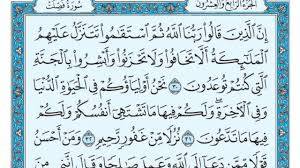 الجزء الرابع والعشرون
سورة فصلت
إِنَّ ٱلَّذِينَ قَالُوا۟ رَبُّنَا ٱللَّهُ ثُمَّ ٱسْتَقَٰمُوا۟ تَتَنَزَّلُ عَلَيْهِمُ
ٱلْمَلَٰٓئِكَةُ أَلَّا تَخَافُوا۟ وَلَا تَحْزَنُوا۟ وَأَبْشِرُوا۟ بِٱلْجَنَّةِ
ٱلَّتِى كُنتُمْ تُوعَدُونَ ٣٠ نَحْنُ أَوْلِيَآؤُكُمْ فِى ٱلْحَيَوٰةِ ٱلدُّنْيَا
وَفِى ٱلْءَاخِرَةِ وَلَكُمْ فِيهَا مَا تَشْتَهِىٓ أَنفُسُكُمْ وَلَكُمْ
فِيهَا مَا تَدَّعُونَ ٣١ نُزُلًا مِّنْ غَفُورٍ رَّحِيمٍ ٣٢ وَمَنْ أَحْسَنُ
دَعَآ إِلَى ٱللَّهِ وَعَمِلَ صَٰلِحًا وَقَالَ إِنَّنِى مِنَ